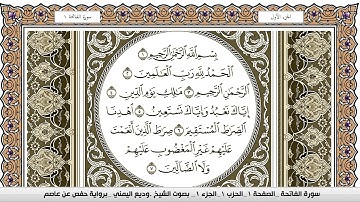 الجزء الأول
سورة الفاتحة ١
بِسْمِ اللَّهِ الرَّحْمَٰنِ الرَّحِيمِ ١
الْحَمْدُ لِلَّهِ رَبِّ الْعَالَمِينَ ٢
الرَّحْمَٰنِ الرَّحِيمِ ٣ مَالِكِ يَوْمِ الدِّينِ ٤
إِيَّاكَ نَعْبُدُ وَإِيَّاكَ نَسْتَعِينُ ٥ اهْدِنَا
الصِّرَاطَ الْمُسْتَقِيمَ ٦ صِرَاطَ الَّذِينَ أَنْعَمْتَ
عَلَيْهِمْ غَيْرِ الْمَغْضُوبِ عَلَيْهِمْ
وَلَا الضَّالِّينَ ٧
سورة الفاتحة _الصفحة ١_الحزب ١_الجزء ١_ بصوت الشيخ _وديع اليمني _برواية حفص عن عاصم